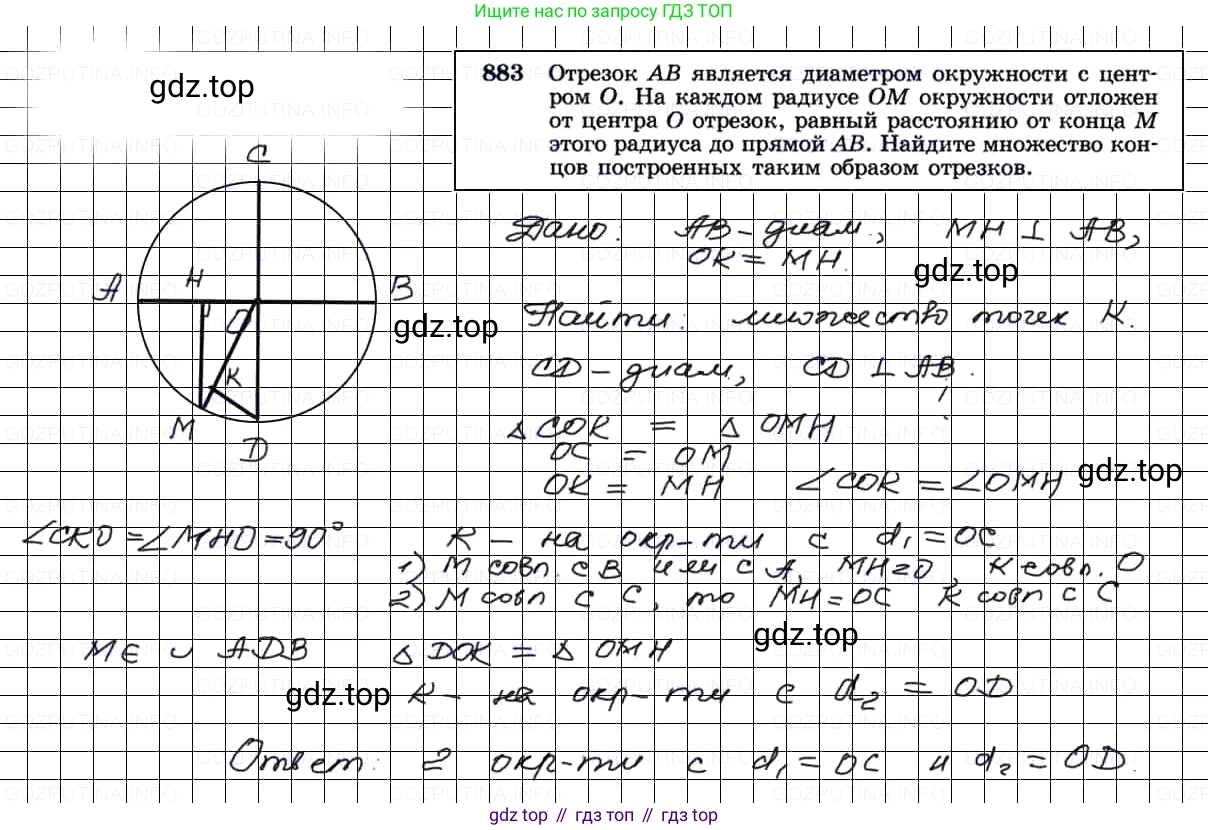 Ищите нас по запросу ГДЗ ТОП
gdz.top
883 Отрезок AB является диаметром окружности с цент-
ром O. На каждом радиусе OM окружности отложен
от центра O отрезок, равный расстоянию от конца M
этого радиуса до прямой AB. Найдите множество кон-
цов построенных таким образом отрезков.
C
A
H
B
O
K
M
D
Дано: AB - диам., MH ⊥ AB,
OK = MH.
gdz.top
gdz.top
Найти: множество точек K.
CD - диам, CD ⊥ AB.
△ COK = △ OMH
OC = OM
OK = MH ∠COK = ∠OMH
gdz.top
∠CKO = ∠MHO = 90° K - на окр-ти с d₁ = OC
1) M совп. с B или с A, MH = O, K совп. O
2) M совп с C, то MH = OC K совп с C
gdz.top
M ∈ ∪ ADB △ DOK = △ OMH
gdz.top
K - на окр-ти с d₂ = OD
Ответ: 2 окр-ти с d₁ = OC и d₂ = OD.
gdz.top // гдз топ // gdz top